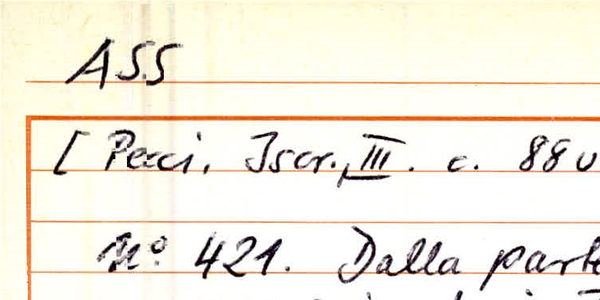 ASS
[ Pecci, Iscr. III. c. 88v
N° 421. Dalla parte